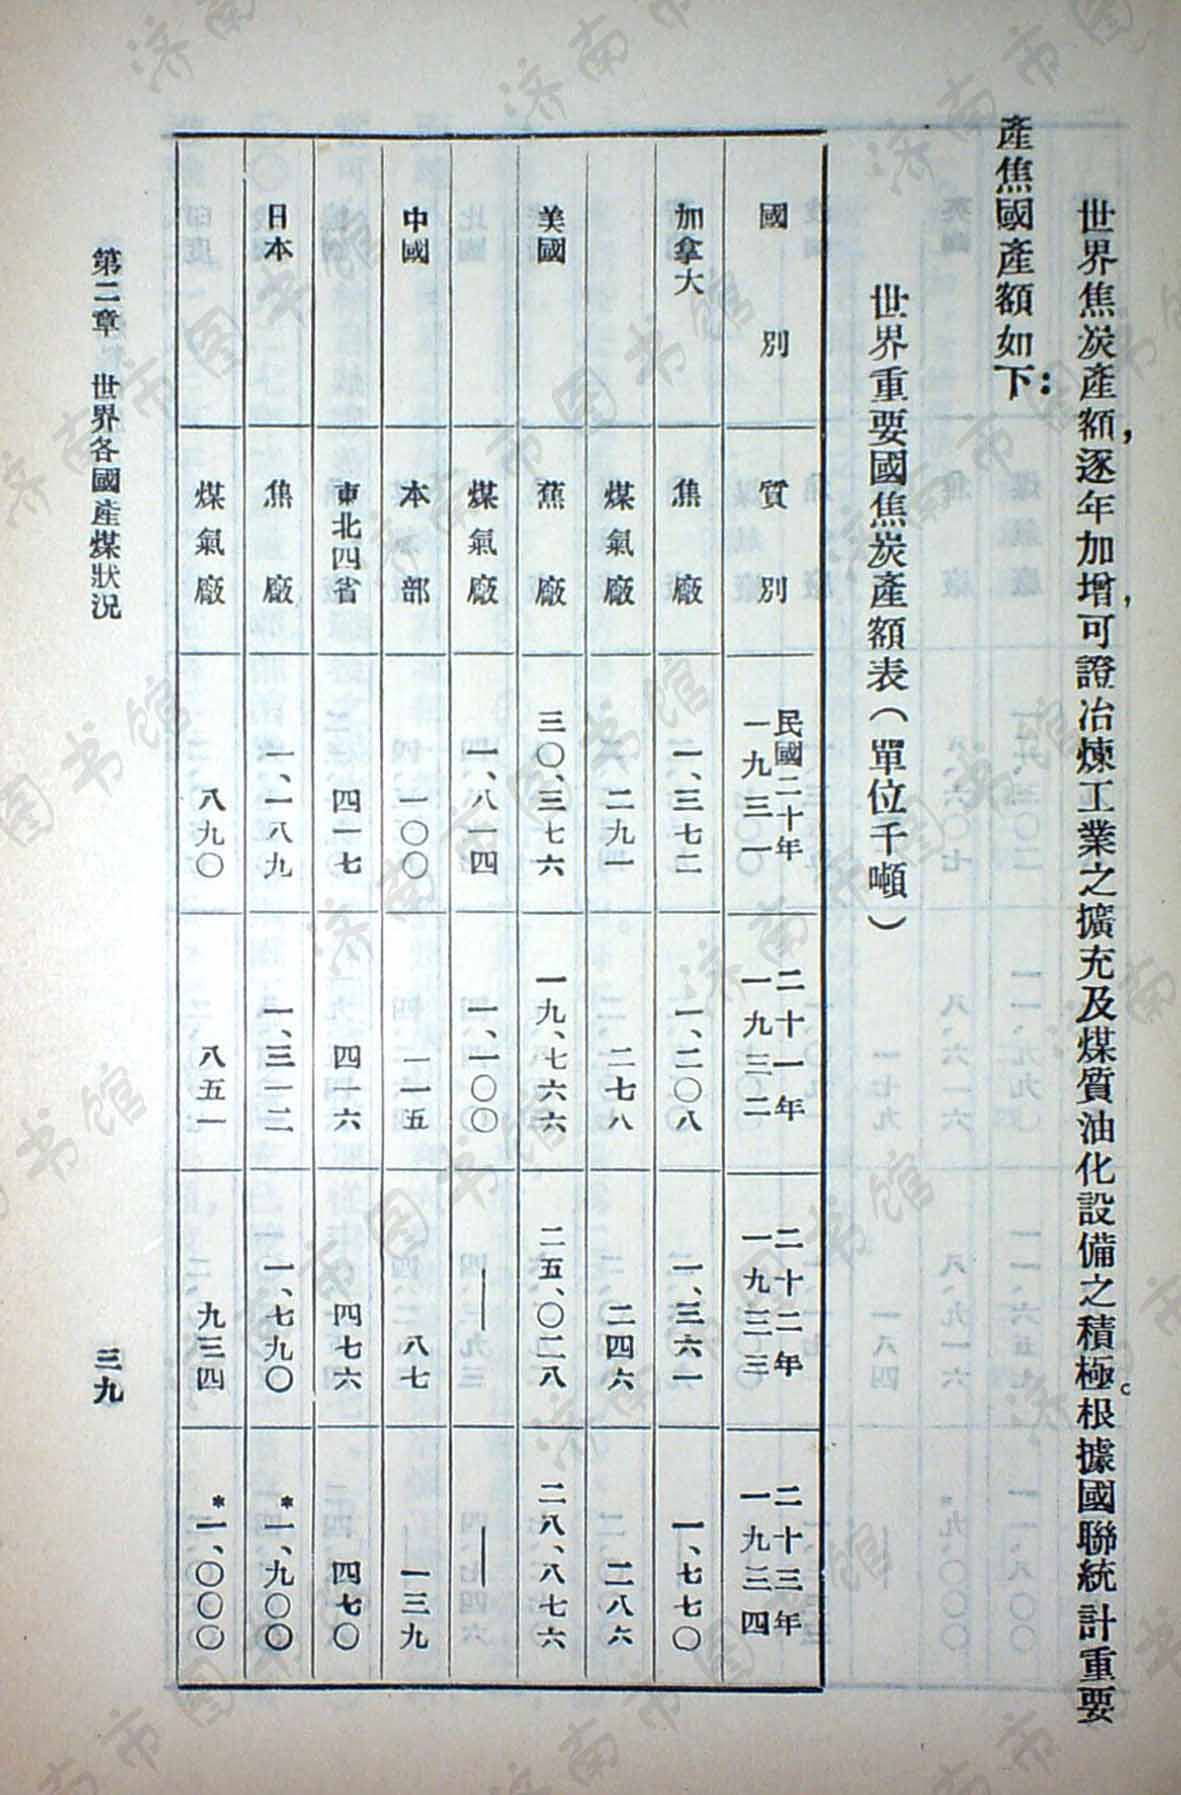 世界焦炭產額，逐年加增，可證冶煉工業之擴充及煤質油化設備之積極。根據國聯統計重要
產焦國產額如下：
世界重要國焦炭產額表（單位千噸）
國別 質別 民國二十年一九三一 二十一年一九三二 二十二年一九三三 二十三年一九三四
加拿大 焦廠 一、三七二 一、二〇八 一、三六一 一、七七〇
煤氣廠 二九一 二七八 二四六 二八六
美國 蕉廠 三〇、三七六 一九、七六六 二五、〇二八 二八、八七六
煤氣廠 一、八一四 一、一〇〇 — —
中國 本部 一〇〇 一一五 八七 一三九
東北四省 四一七 四一六 四七六 四七〇
日本 焦廠 一、一八九 一、三一二 一、七九〇 *一、九〇〇
煤氣廠 八九〇 八五一 九三四 *一、〇〇〇
第二章 世界各國產煤狀況
三九
济南市图书馆